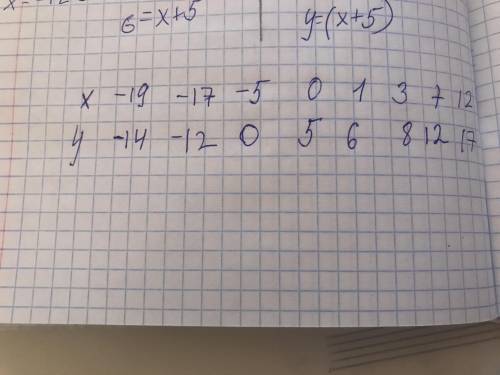 6=x+5
y=(x+5)
x -19 -17 -5 0 1 3 7 12
y -14 -12 0 5 6 8 12 17